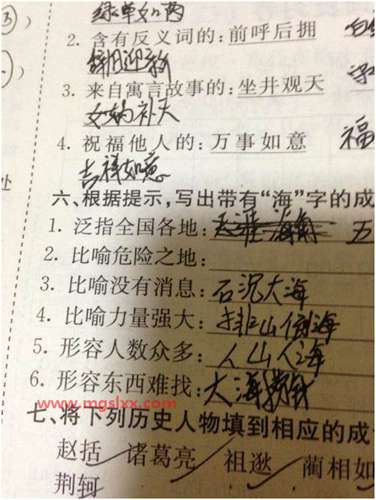 绿草如茵
2. 含有反义词的：前呼后拥
辞旧迎新
3. 来自寓言故事的：坐井观天
女娲补天
4. 祝福他人的：万事如意 福
吉祥如意
处
六、根据提示，写出带有“海”字的成
1. 泛指全国各地：天涯海角 五
2. 比喻危险之地：
3. 比喻没有消息：石沉大海
4. 比喻力量强大：排山倒海
5. 形容人数众多：人山人海
6. 形容东西难找：大海捞针
www.mgslxx.com
七、将下列历史人物填到相应的成
赵括 诸葛亮 祖逖 蔺相如
荆轲